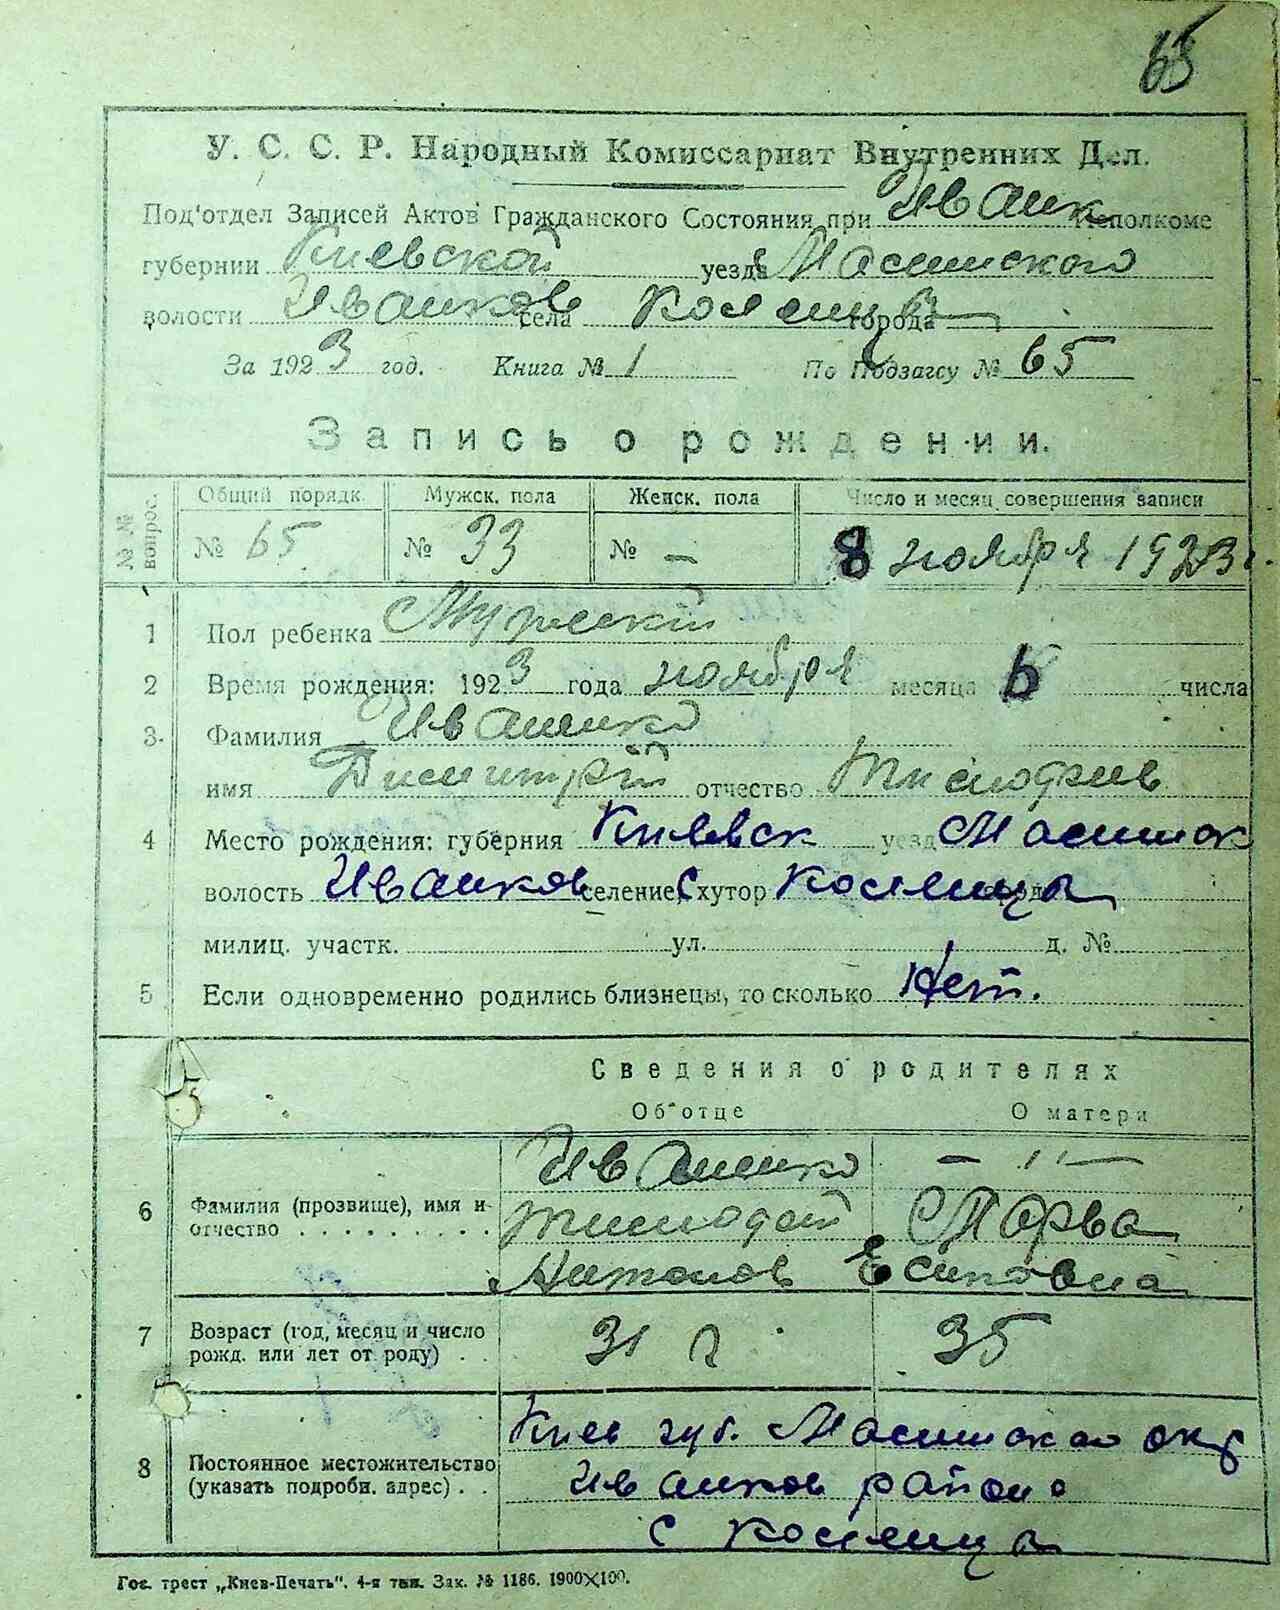 65
У. С. С. Р. Народный Комиссариат Внутренних Дел.
Под'отдел Записей Актов Гражданского Состояния при Иванк Исполкоме
губернии Киевской уезда
волости Иванков села города —
За 1923 год. Книга № 1 По Подзагсу № 65
Запись о рождении.
№№ вопрос. Общий порядк. Мужск. пола Женск. пола Число и месяц совершения записи
№ 65 № 33 № — 8 ноября 1923 г.
1 Пол ребенка Мужский
2 Время рождения: 1923 года ноября месяца 6 числа
3 Фамилия Иващенко
имя Димитрий отчество
4 Место рождения: губерния Киевск уезд
волость Иванков селение, хутор города
милиц. участк. ул. д. №
5 Если одновременно родились близнецы, то сколько Нет.
Сведения о родителях
Об отце О матери
6 Фамилия (прозвище), имя и отчество Иващенко — " —
Марва
Антонов Есиповна
7 Возраст (год, месяц и число рожд. или лет от роду) 31 г 35
8 Постоянное местожительство (указать подробн. адрес) Киев губ. окр
Иванков района
с
Гос. трест „Киев-Печать". 4-я тип. Зак. № 1186. 1900×100.